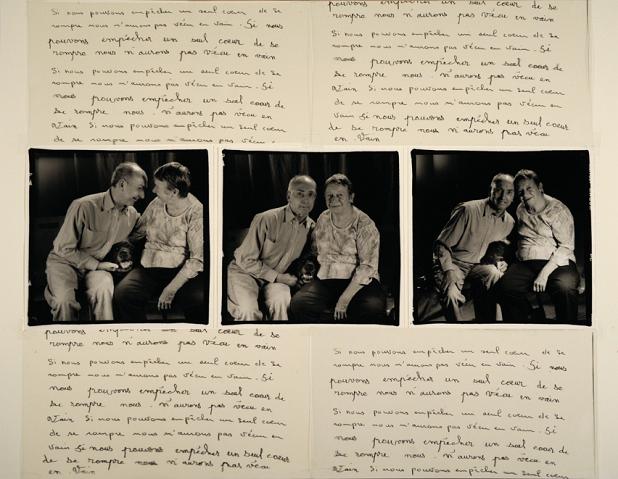 Si nous pouvons empêcher un seul cœur de se
rompre nous n'aurons pas vécu en vain. Si nous
pouvons empêcher un seul cœur de se
rompre nous n'aurons pas vécu en vain
Si nous pouvons empêcher un seul cœur de se
rompre nous n'aurons pas vécu en vain. Si
nous pouvons empêcher un seul cœur de
se rompre nous n'aurons pas vécu en
Vain Si nous pouvons empêcher un seul cœur
de se rompre nous n'aurons pas vécu
pouvons empêcher un seul cœur de se
rompre nous n'aurons pas vécu en vain
Si nous pouvons empêcher un seul cœur de se
rompre nous n'aurons pas vécu en vain. Si
nous pouvons empêcher un seul cœur de
se rompre nous n'aurons pas vécu en
Vain Si nous pouvons empêcher un seul cœur
de se rompre nous n'aurons pas vécu en
vain Si nous pouvons empêcher un seul cœur
de se rompre nous n'aurons pas vécu
en Vain
pouvons cœur de se
rompre nous n'aurons pas vécu en vain
Si nous pouvons empêcher un seul cœur de se
rompre nous n'aurons pas vécu en vain. Si
nous pouvons empêcher un seul cœur de
se rompre nous n'aurons pas vécu en
Vain Si nous pouvons empêcher un seul cœur
de se rompre nous n'aurons pas vécu en
vain Si nous pouvons empêcher un seul cœur
de se rompre nous n'aurons pas vécu
en Vain
Si nous pouvons empêcher un seul cœur de se
rompre nous n'aurons pas vécu en vain. Si nous
pouvons empêcher un seul cœur de se
rompre nous n'aurons pas vécu en vain
Si nous pouvons empêcher un seul cœur de se
rompre nous n'aurons pas vécu en vain. Si
nous pouvons empêcher un seul cœur de
se rompre nous n'aurons pas vécu en
Vain Si nous pouvons empêcher un seul cœur